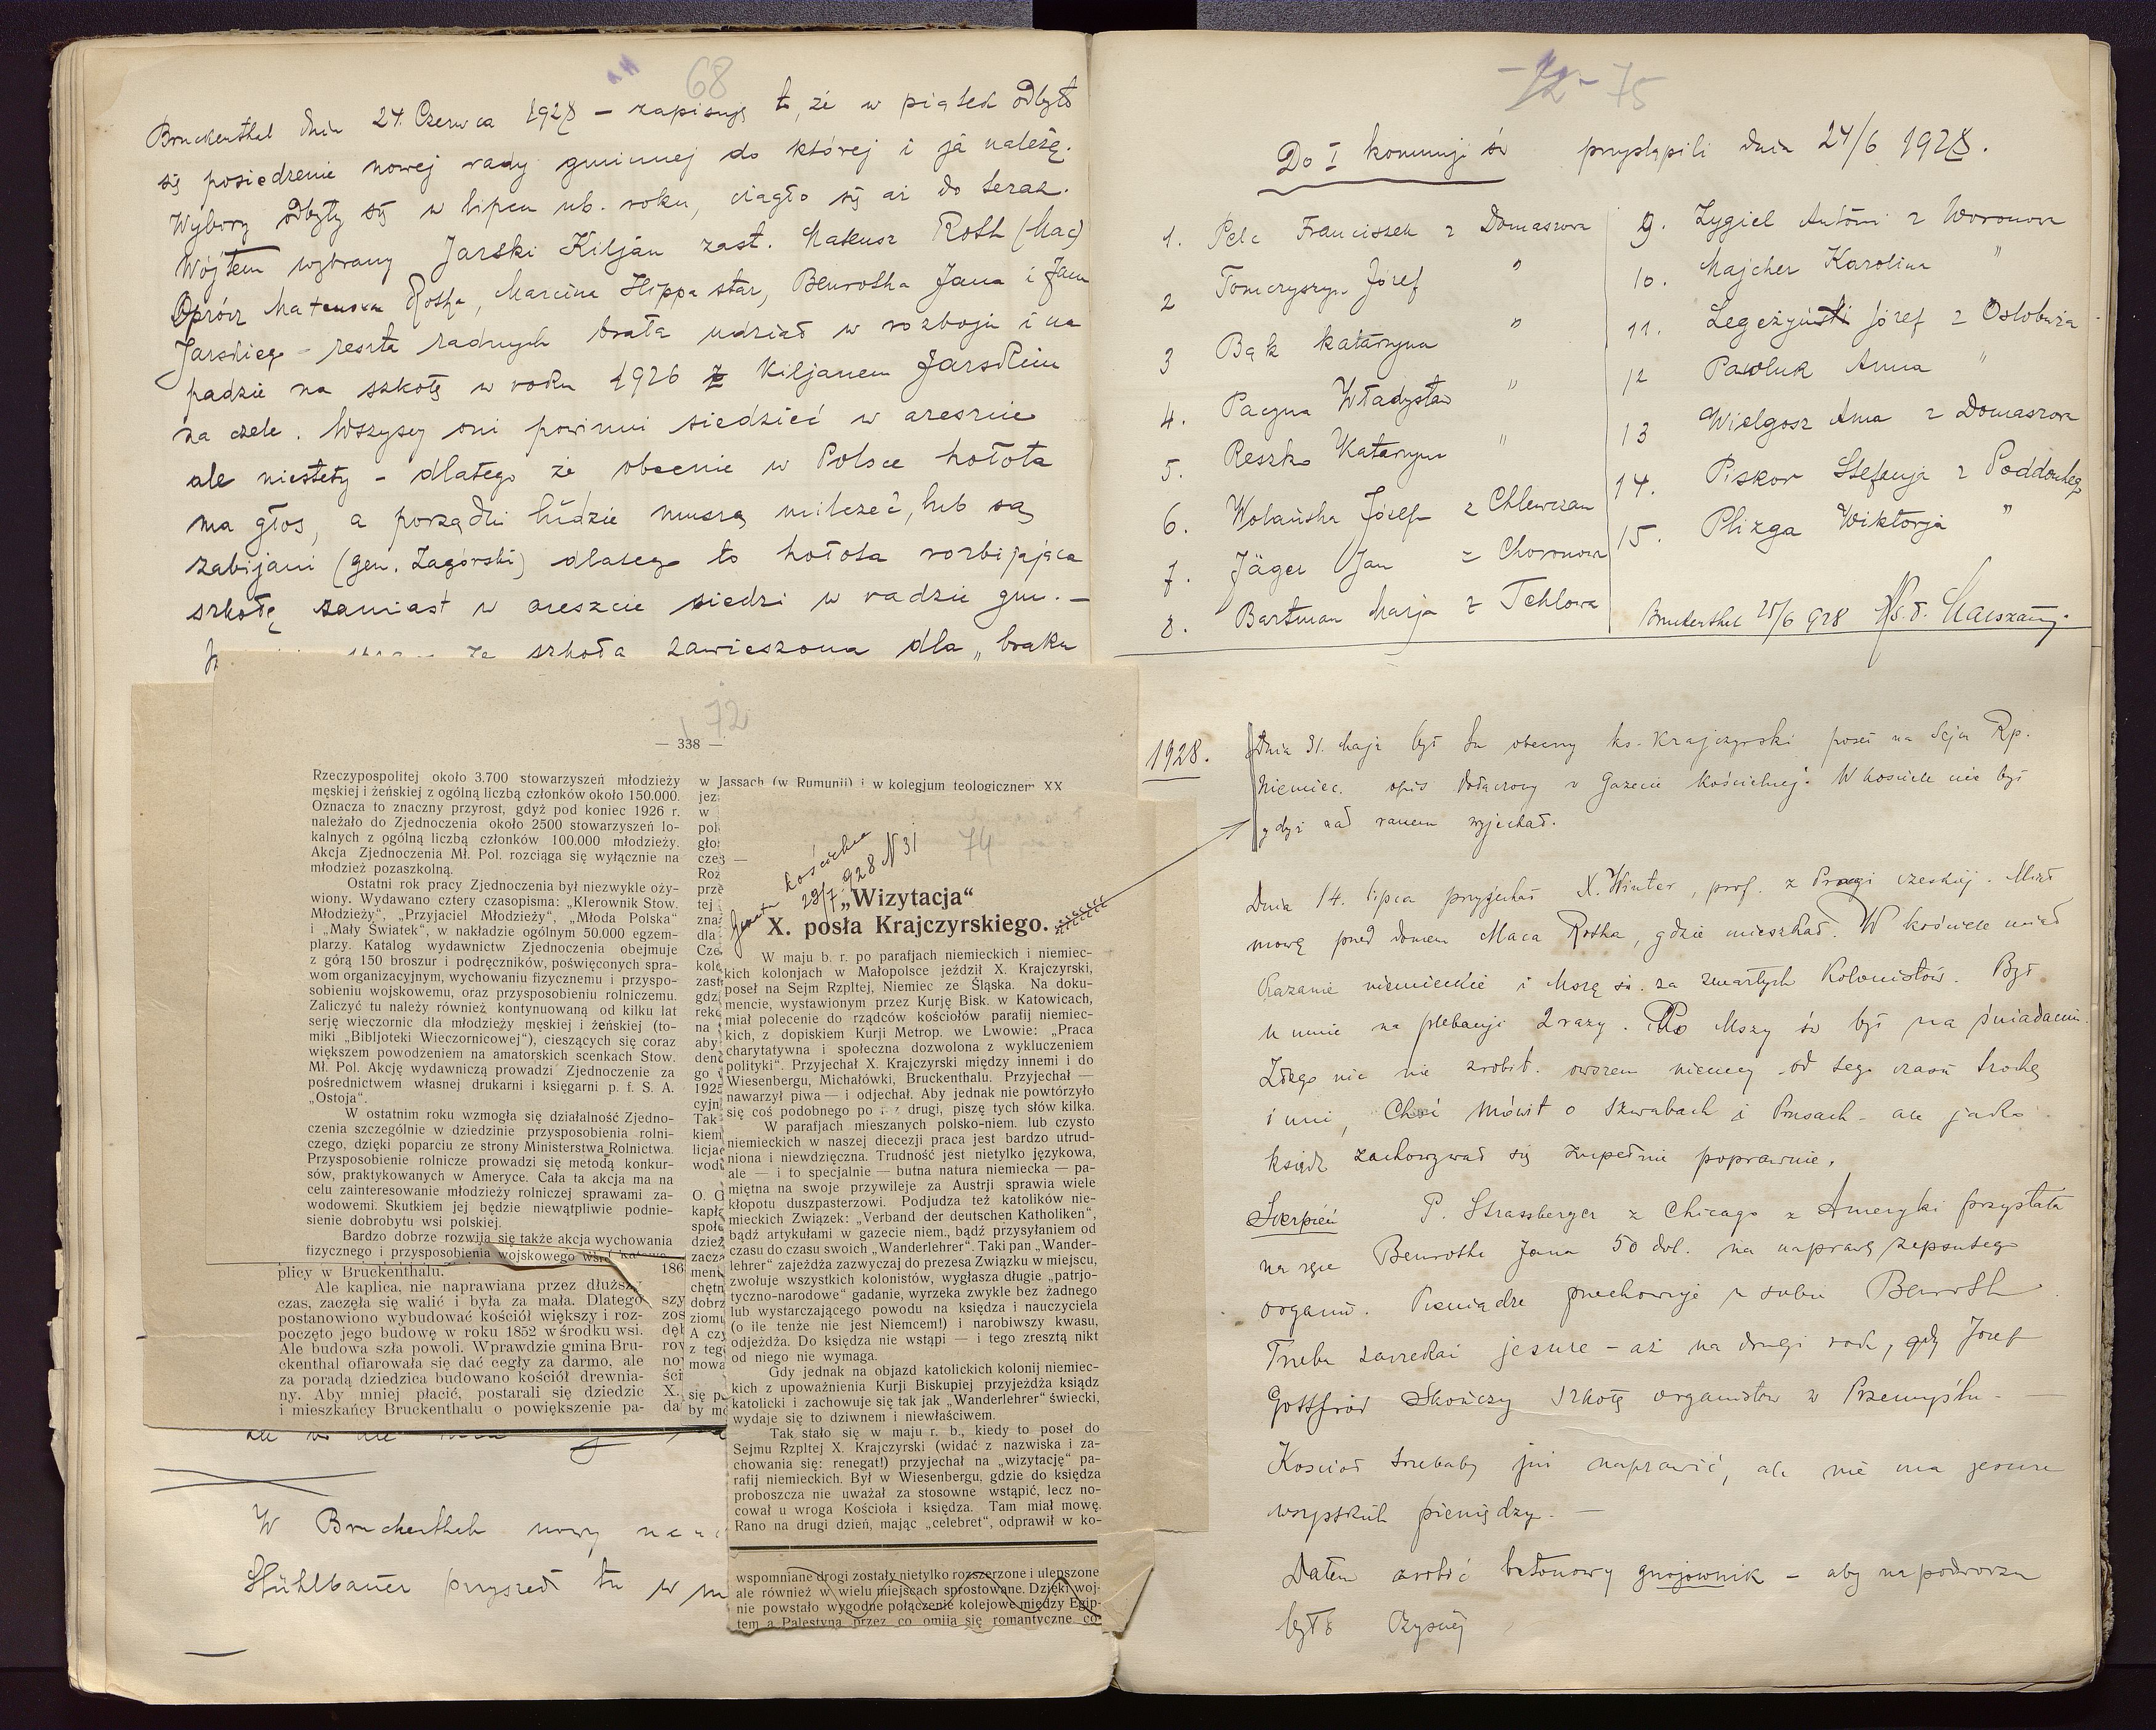 68
Bruckenthal dnia 24. Czerwca 1928 – zapisuję to, że w piątek odbyło
się posiedzenie nowej rady gminnej do której i ja należę.
Wybory odbyły się w lipcu ub. roku, ciągło się aż do teraz.
Wójtem wybrany Jarski Kiljan zast. Mateusz Roth (Mac)
Oprócz Mateusza Rotha, Marcina Hippa star, Benrotha Jana i Jana
Jarskiego – reszta radnych brała udział w rozboju i na
padzie na szkołę w roku 1926 z Kiljanem Jarskim
na czele. Wszyscy oni powinni siedzieć w areszcie
ale niestety – dlatego że obecnie w Polsce hołota
ma głos, a porządni ludzie muszą milczeć, lub są
zabijani (gen. Zagórski) dlatego to hołota rozbijająca
szkołę zamiast w areszcie siedzi w radzie gm. –
szkoła zawieszona dla „braku
72
— 338 —
Rzeczypospolitej około 3.700 stowarzyszeń młodzieży
męskiej i żeńskiej z ogólną liczbą członków około 150.000.
Oznacza to znaczny przyrost, gdyż pod koniec 1926 r.
należało do Zjednoczenia około 2500 stowarzyszeń lo-
kalnych z ogólną liczbą członków 100.000 młodzieży.
Akcja Zjednoczenia Mł. Pol. rozciąga się wyłącznie na
młodzież pozaszkolną.
Ostatni rok pracy Zjednoczenia był niezwykle oży-
wiony. Wydawano cztery czasopisma: „Kierownik Stow.
Młodzieży”, „Przyjaciel Młodzieży”, „Młoda Polska”
i „Mały Światek”, w nakładzie ogólnym 50.000 egzem-
plarzy. Katalog wydawnictw Zjednoczenia obejmuje
z górą 150 broszur i podręczników, poświęconych spra-
wom organizacyjnym, wychowaniu fizycznemu i przyspo-
sobieniu wojskowemu, oraz przysposobieniu rolniczemu.
Zaliczyć tu należy również kontynuowaną od kilku lat
serję wieczornic dla młodzieży męskiej i żeńskiej (to-
miki „Bibljoteki Wieczornicowej”), cieszących się coraz
większem powodzeniem na amatorskich scenkach Stow.
Mł. Pol. Akcję wydawniczą prowadzi Zjednoczenie za
pośrednictwem własnej drukarni i księgarni p. f. S. A.
„Ostoja”.
W ostatnim roku wzmogła się działalność Zjedno-
czenia szczególnie w dziedzinie przysposobienia rolni-
czego, dzięki poparciu ze strony Ministerstwa Rolnictwa.
Przysposobienie rolnicze prowadzi się metodą konkur-
sów, praktykowanych w Ameryce. Cała ta akcja ma na
celu zainteresowanie młodzieży rolniczej sprawami za-
wodowemi. Skutkiem jej będzie niewątpliwie podnie-
sienie dobrobytu wsi polskiej.
Bardzo dobrze rozwija się także akcja wychowania
fizycznego i przysposobienia wojskowego wśród
plicy w Bruckenthalu.
Ale kaplica, nie naprawiana przez dłuższy
czas, zaczęła się walić i była za mała. Dlatego
postanowiono wybudować kościół większy i roz-
poczęto jego budowę w roku 1852 w środku wsi.
Ale budowa szła powoli. Wprawdzie gmina Bru-
ckenthal ofiarowała się dać cegły za darmo, ale
za poradą dziedzica budowano kościół drewnia-
ny. Aby mniej płacić, postarali się dziedzic
i mieszkańcy Bruckenthalu o powiększenie pa-
w Jassach (w Rumunji) i w kolegjum teologicznem XX
74
Gazeta kościelna
29/7 928 N 31
„Wizytacja“
X. posła Krajczyrskiego.
W maju b. r. po parafjach niemieckich i niemiec-
kich kolonjach w Małopolsce jeździł X. Krajczyrski,
poseł na Sejm Rzpltej, Niemiec ze Śląska. Na doku-
mencie, wystawionym przez Kurję Bisk. w Katowicach,
miał polecenie do rządców kościołów parafij niemiec-
kich, z dopiskiem Kurji Metrop. we Lwowie: „Praca
charytatywna i społeczna dozwolona z wykluczeniem
polityki“. Przyjechał X. Krajczyrski między innemi i do
Wiesenbergu, Michałówki, Bruckenthalu. Przyjechał —
nawarzył piwa — i odjechał. Aby jednak nie powtórzyło
się coś podobnego po drugi, piszę tych słów kilka.
W parafjach mieszanych polsko-niem. lub czysto
niemieckich w naszej diecezji praca jest bardzo utrud-
niona i niewdzięczna. Trudność jest nietylko językowa,
ale — i to specjalnie — butna natura niemiecka — pa-
miętna na swoje przywileje za Austrji sprawia wiele
kłopotu duszpasterzowi. Podjudza też katolików nie-
mieckich Związek: „Verband der deutschen Katholiken“,
bądź artykułami w gazecie niem., bądź przysyłaniem od
czasu do czasu swoich „Wanderlehrer“. Taki pan „Wander-
lehrer“ zajeżdża zazwyczaj do prezesa Związku w miejscu,
zwołuje wszystkich kolonistów, wygłasza długie „patrjo-
tyczno-narodowe“ gadanie, wyrzeka zwykle bez żadnego
lub wystarczającego powodu na księdza i nauczyciela
(o ile tenże nie jest Niemcem!) i narobiwszy kwasu,
odjeżdża. Do księdza nie wstąpi — i tego zresztą nikt
od niego nie wymaga.
Gdy jednak na objazd katolickich kolonij niemiec-
kich z upoważnienia Kurji Biskupiej przyjeżdża ksiądz
katolicki i zachowuje się tak jak „Wanderlehrer“ świecki,
wydaje się to dziwnem i niewłaściwem.
Tak stało się w maju r. b., kiedy to poseł do
Sejmu Rzpltej X. Krajczyrski (widać z nazwiska i za-
chowania się: renegat!) przyjechał na „wizytację“ pa-
rafij niemieckich. Był w Wiesenbergu, gdzie do księdza
proboszcza nie uważał za stosowne wstąpić, lecz no-
cował u wroga Kościoła i księdza. Tam miał mowę.
Rano na drugi dzień, mając „celebret“, odprawił w ko-
wspomniane drogi zostały nietylko rozszerzone i ulepszone
ale również w wielu miejscach sprostowane. Dzięki woj-
nie powstało wygodne połączenie kolejowe między Egip-
tem a Palestyną przez co omija się romantyczne co-
W Bruckenthalu nowy
Hühlbauer przyszedł tu w
75
Do I komunji św przystąpili dnia 24/6 1928.
1. Pelc Franciszek z Domaszowa
2 Tomczyszyn Józef "
3 Bąk Katarzyna "
4. Pacyna Władysław "
5. Reszko Katarzyna "
6. Wolańska Józefa z Chlewczan
7. Jäger Jan z Choronowa
8. Bartman Marja z Tehlowa
9. Zygiel Antoni z Woronowa
10. Majcher Karolina "
11. Legeżyński Józef z Ostobuża
12 Pawluk Anna "
13 Wielgosz Anna z Domaszowa
14. Piskor Stefanja z Poddubiego
15. Plizga Wiktorja "
Bruckenthal 25/6 928
1928. Dnia 31. maja był tu obecny ks. Krajczyrski poseł na Sejm Rp.
Niemiec. opis dołączony z Gazecie kościelnej. W kościele nie był
gdyż nad ranem wyjechał.
Dnia 14. lipca przyjechał X. Winter, prof. z Pragi czeskiej. Miał
mowę przed domem Maca Rotha, gdzie mieszkał. W kościele miał
kazanie niemieckie i Mszę św. za zmarłych kolonistów. Był
u mnie na plebanji 2 razy. Po Mszy św był na śniadaniu.
Złego nic nie zrobił. owszem niemcy od tego czasu trochę
inni, Choć mówił o Szwabach i Prusach – ale jako
ksiądz zachowywał się zupełnie poprawnie.
Sierpień P. Strassberger z Chicago z Ameryki przysłała
na ręce Benrotha Jana 50 dol. na naprawę zepsutego
organu. Pieniądze przechowuje u siebie Benroth.
Trzeba zaczekać jeszcze – aż na drugi rok, gdy Józef
Gottfried skończy szkołę organistów w Przemyślu. –
Kościół trzebaby już naprawić, ale nie ma jeszcze
wszystkich pieniędzy. –
Dałem zrobić betonowy gnojownik – aby na podwórzu
było czyściej